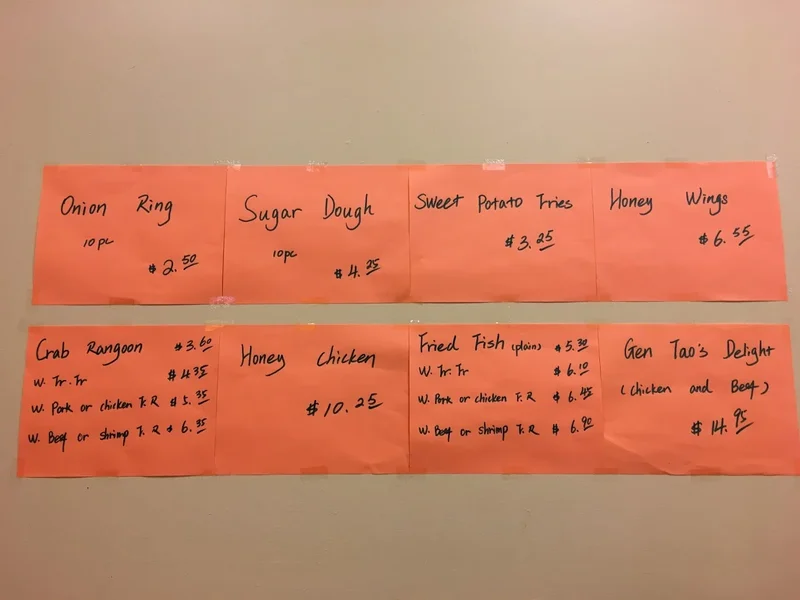 Onion Ring
10 pc
$ 2.50
Sugar Dough
10 pc
$ 4.25
Sweet Potato Fries
$ 3.25
Honey Wings
$ 6.55
Crab Rangoon $ 3.60
W. Fr. Fr $ 4.35
W. Pork or chicken F. R $ 5.35
W. Beef or shrimp F. R $ 6.35
Honey Chicken
$ 10.25
Fried Fish (plain) $ 5.30
W. Fr. Fr $ 6.10
W. Pork or chicken F. R $ 6.45
W. Beef or shrimp F. R $ 6.90
Gen Tao's Delight
(Chicken and Beef)
$ 14.95